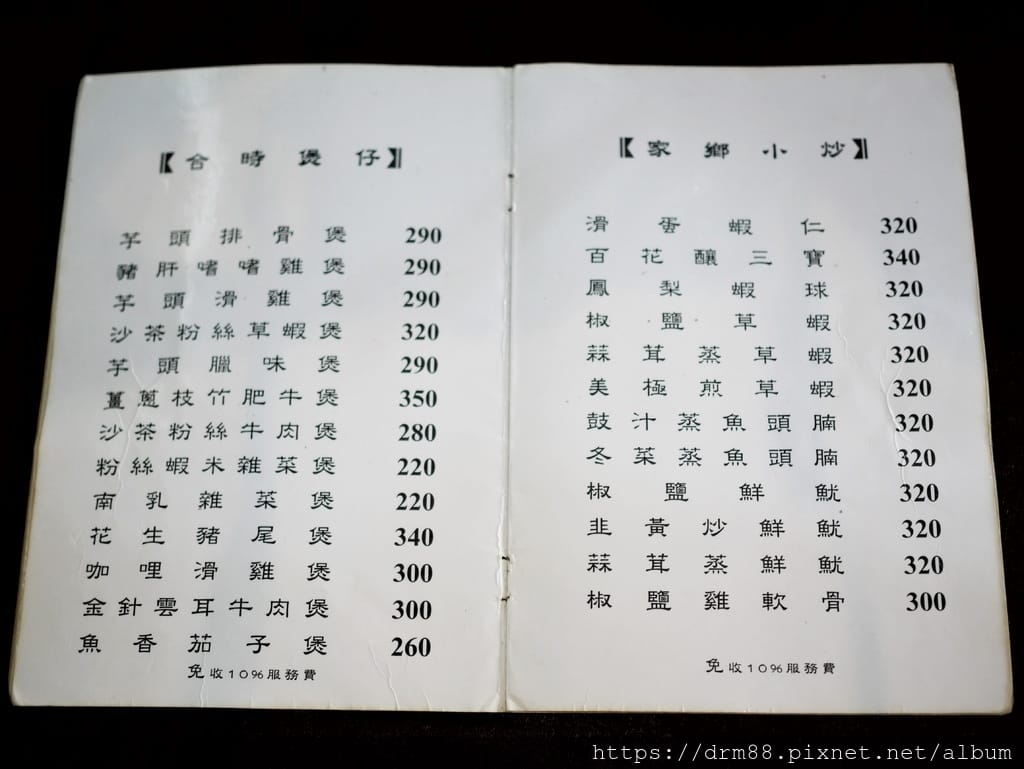 【合時煲仔】
芋頭排骨煲 290
豬肝啫啫雞煲 290
芋頭滑雞煲 290
沙茶粉絲草蝦煲 320
芋頭臘味煲 290
薑蔥枝竹肥牛煲 350
沙茶粉絲牛肉煲 280
粉絲蝦米雜菜煲 220
南乳雜菜煲 220
花生豬尾煲 340
咖哩滑雞煲 300
金針雲耳牛肉煲 300
魚香茄子煲 260
免收10%服務費
【家鄉小炒】
滑蛋蝦仁 320
百花釀三寶 340
鳳梨蝦球 320
椒鹽草蝦 320
蒜茸蒸草蝦 320
美極煎草蝦 320
鼓汁蒸魚頭腩 320
冬菜蒸魚頭腩 320
椒鹽鮮魷 320
韭黃炒鮮魷 320
蒜茸蒸鮮魷 320
椒鹽雞軟骨 300
免收10%服務費
https://drm88.pixnet.net/album